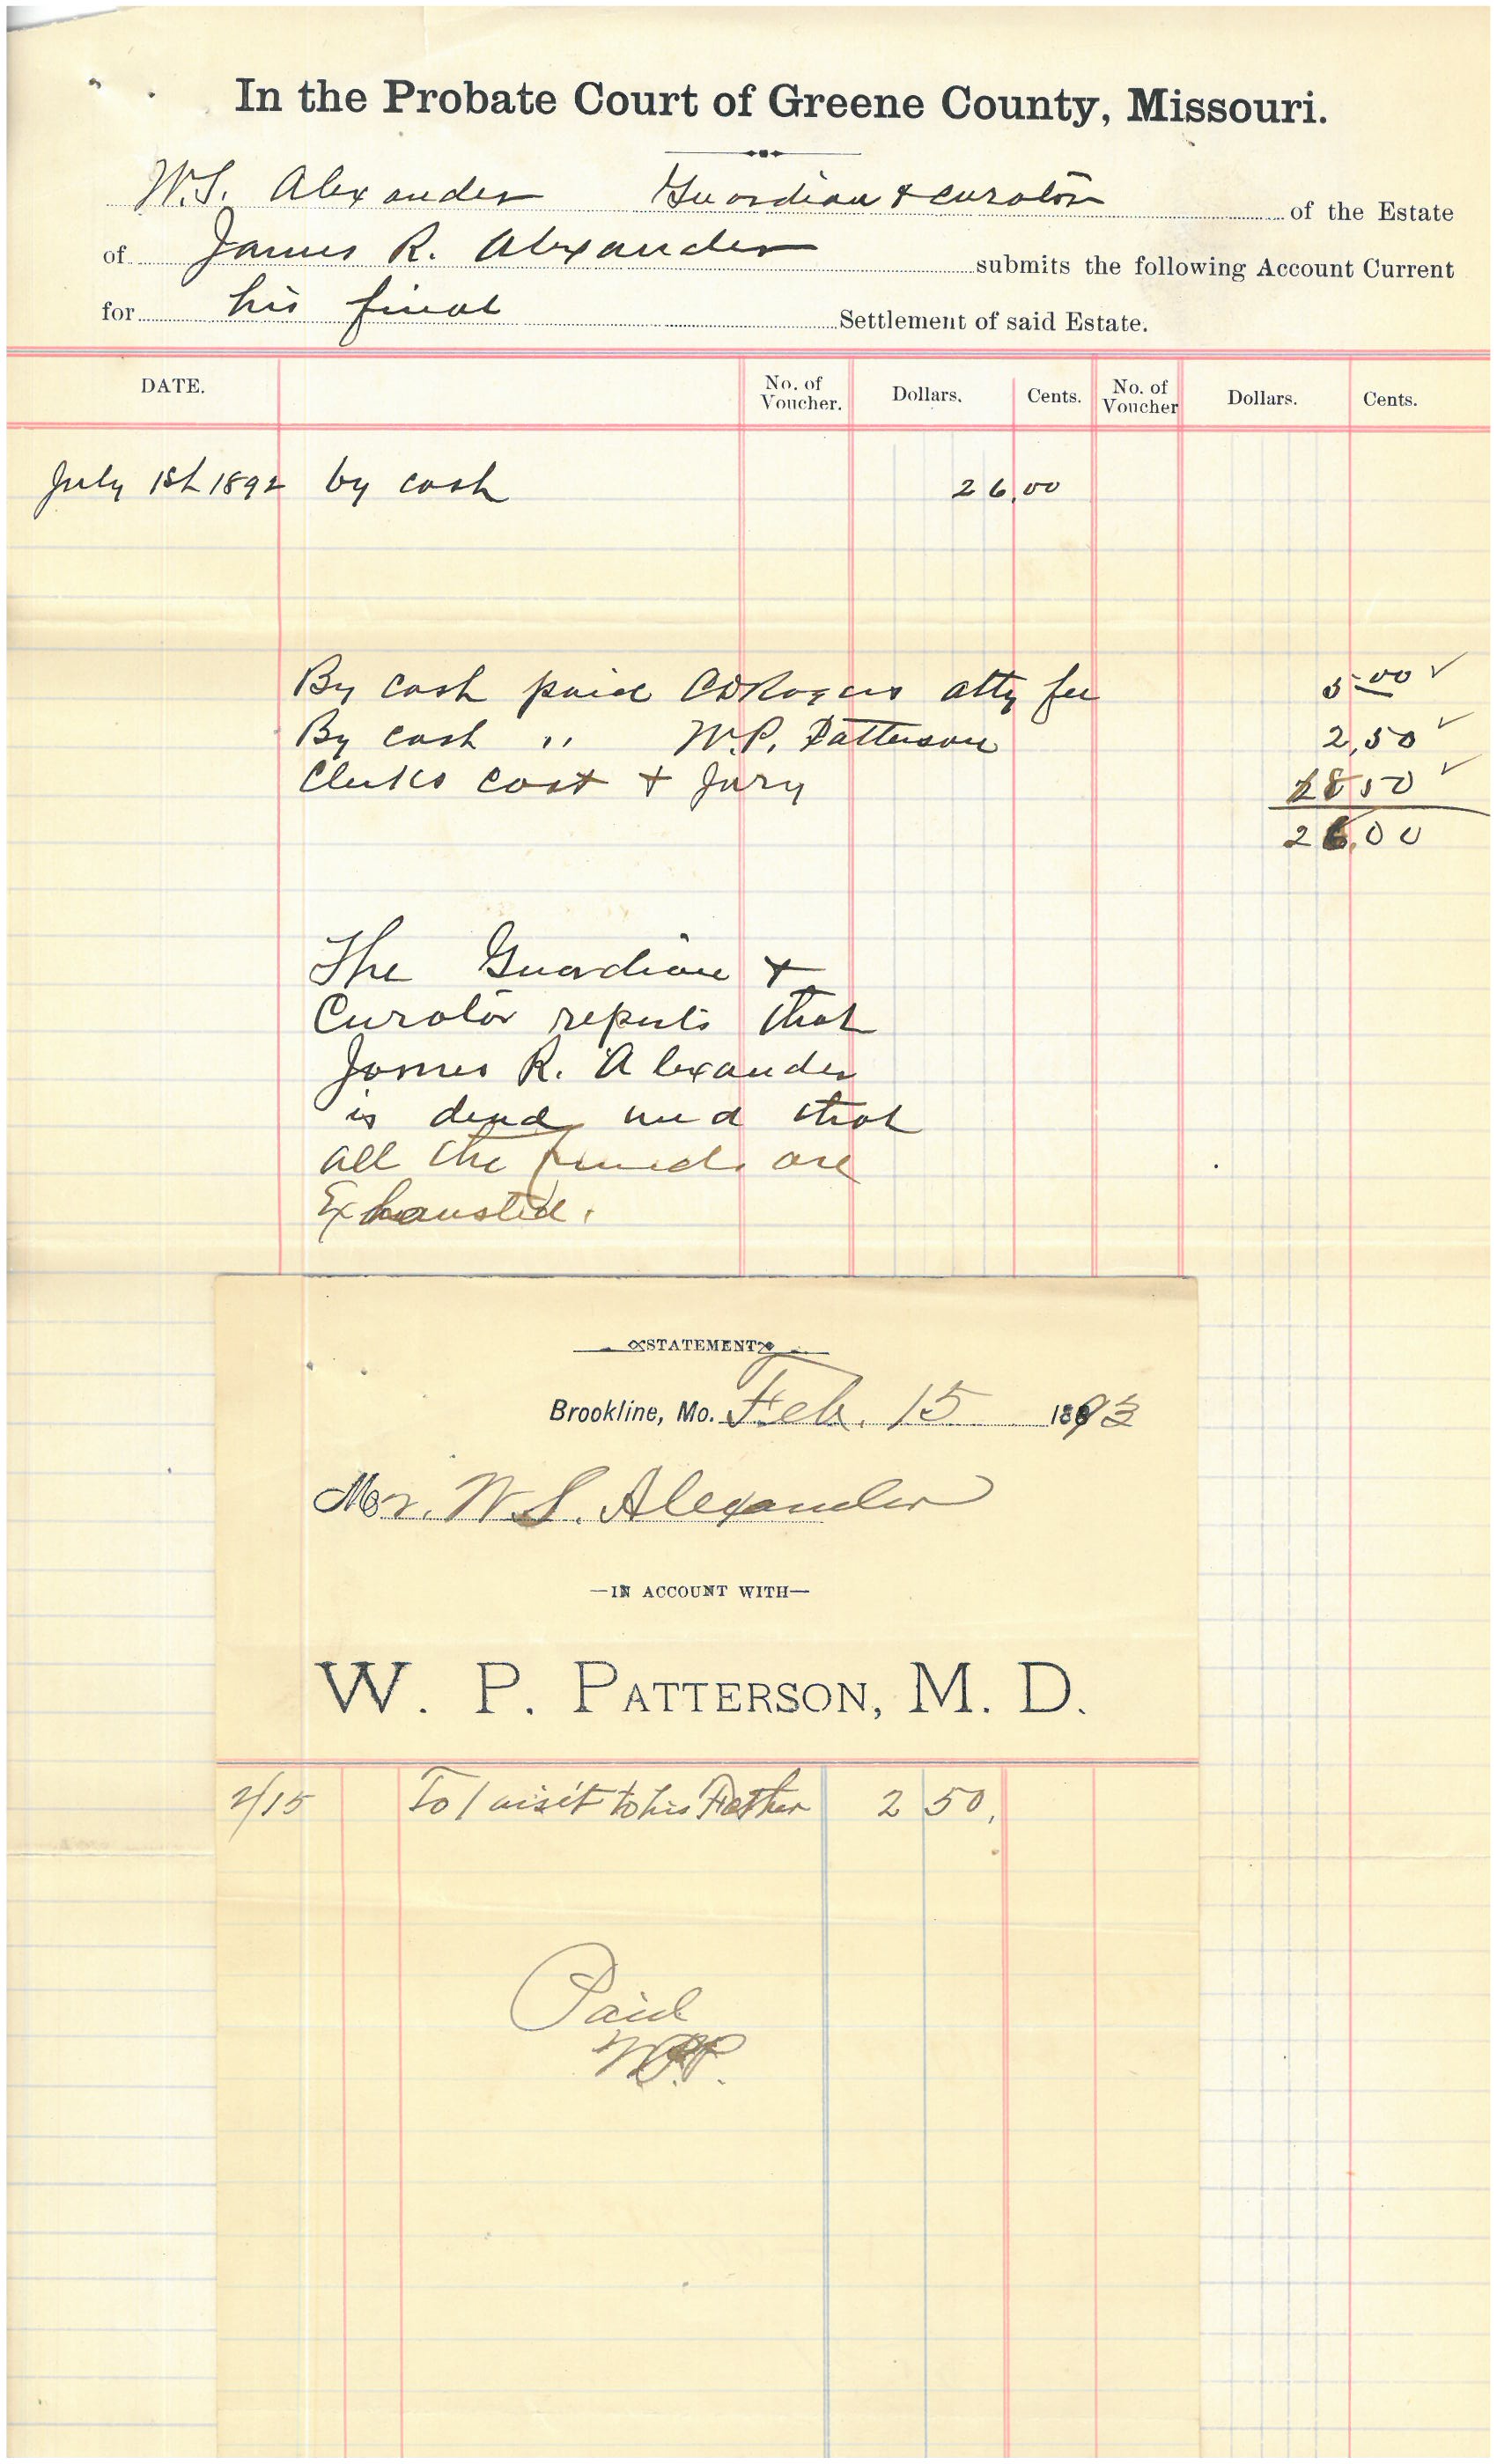 In the Probate Court of Greene County, Missouri.
W.S. Alexander Guardian & curator of the Estate
of James R. Alexander submits the following Account Current
for his final Settlement of said Estate.
DATE. No. of Voucher. Dollars. Cents. No. of Voucher Dollars. Cents.
July 1st 1892 by cash 26,00
By cash paid CDRogers atty fee 5.00 ✓
By cash " W.P. Patterson 2,50 ✓
Clerks cost & Jury 1850 ✓
26,00
The Guardian &
Curator reports that
James R. Alexander
is dead and that
all the funds are
Exhausted.
STATEMENT
Brookline, Mo. Feb. 15 1893
Mr. W.S. Alexander
—IN ACCOUNT WITH—
W. P. PATTERSON, M. D.
2/15 To 1 visit to his Father 2 50.
Paid
W.P.P.